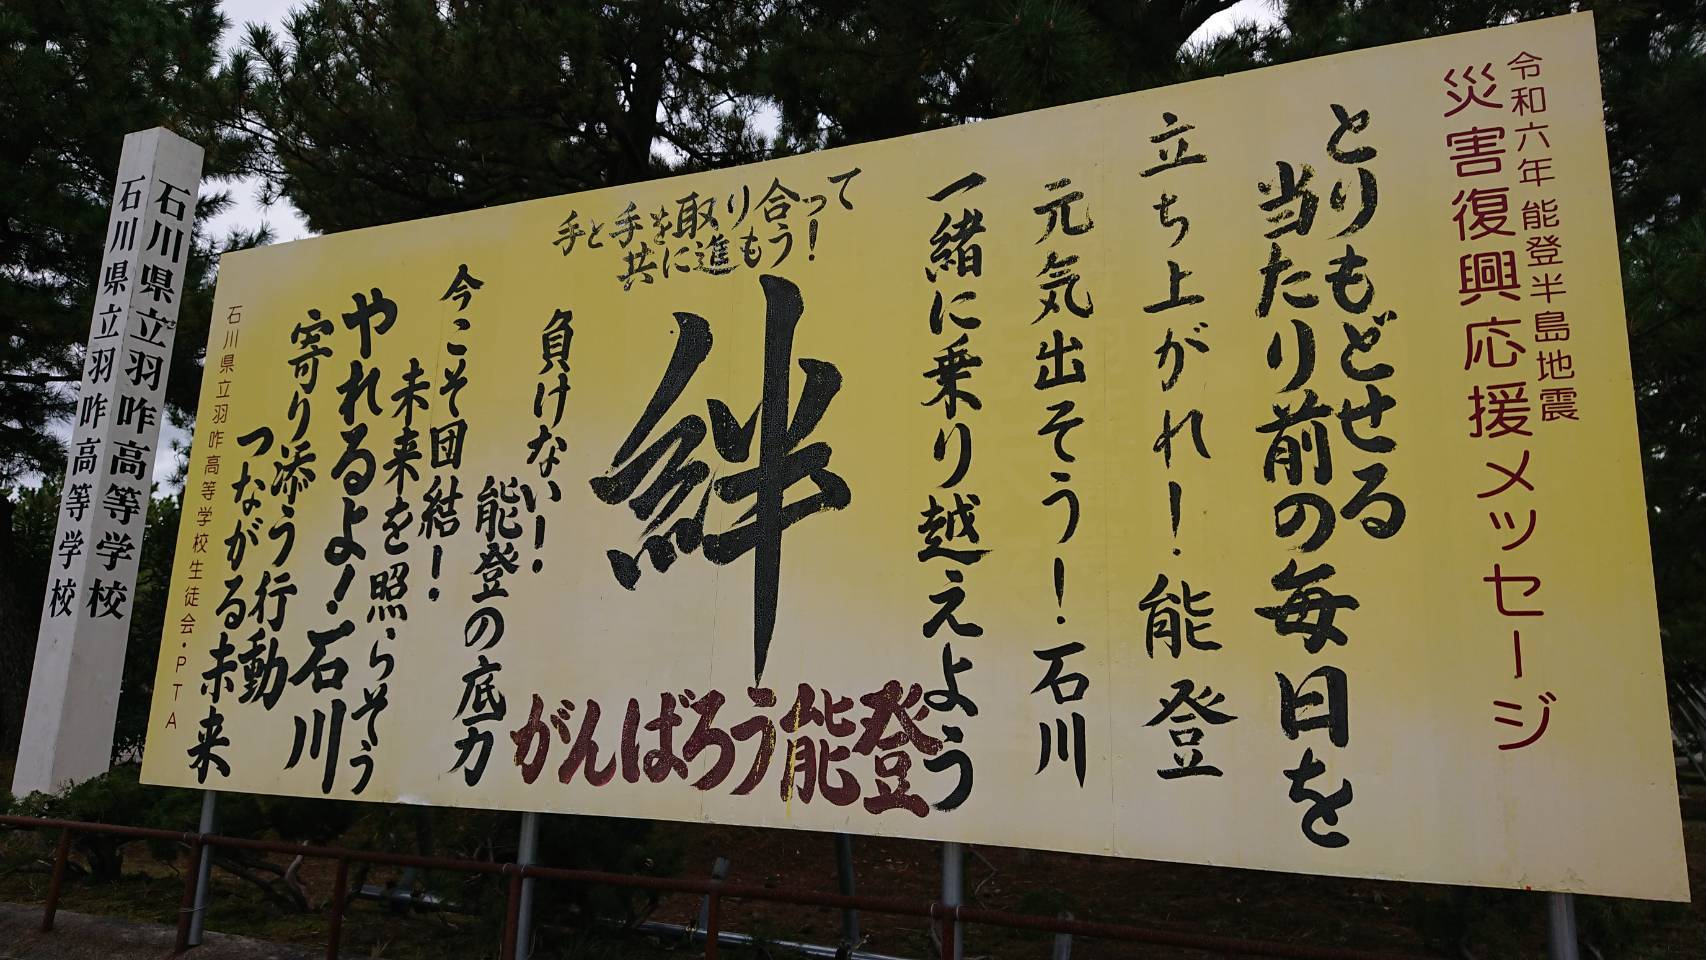 令和六年能登半島地震
災害復興応援メッセージ
とりもどせる
当たり前の毎日を
立ち上がれ!能登
元気出そう!石川
一緒に乗り越えよう
手と手を取り合って
共に進もう!
絆
がんばろう能登
負けない!
能登の底力
今こそ団結!
未来を照らそう
やれるよ!石川
寄り添う行動
つながる未来
石川県立羽咋高等学校生徒会・PTA
石川県立羽咋高等学校
石川県立羽咋高等学校